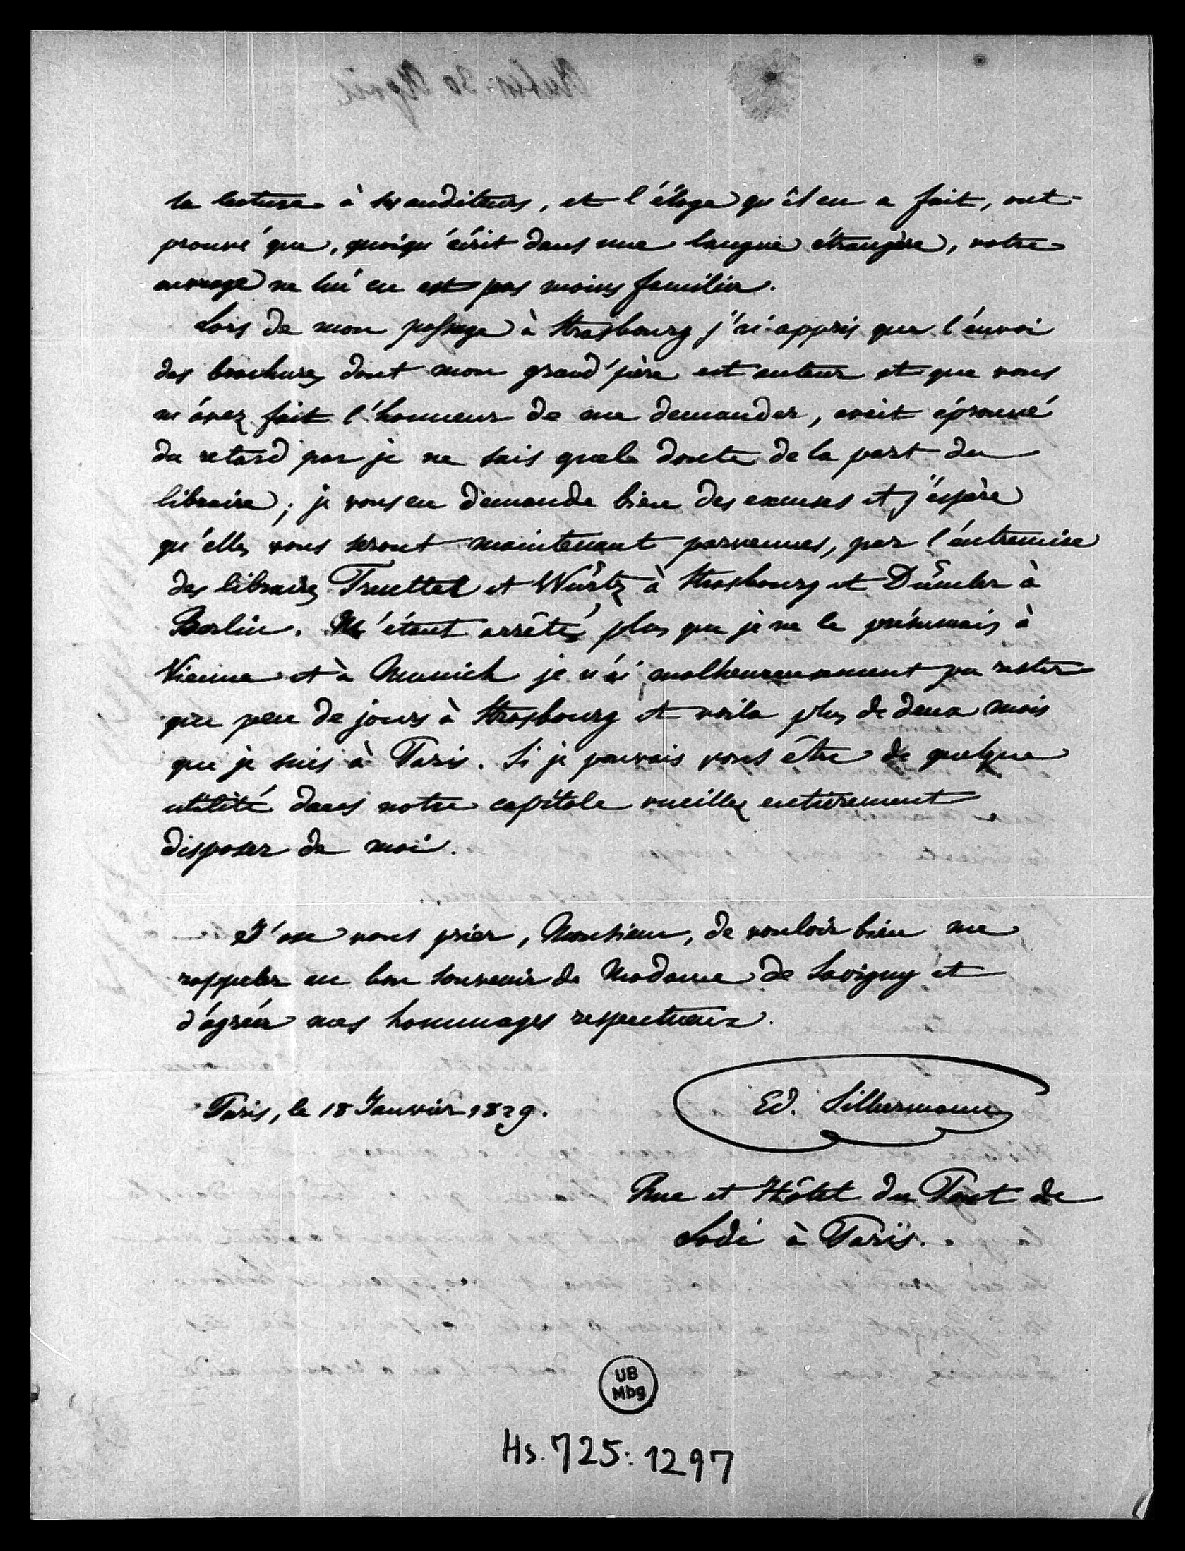 la lecture à ses auditeurs, et l'éloge qu'il en a fait, ont
prouvé que, quoiqu'écrit dans une langue étrangère, votre
ouvrage ne lui en est pas moins familier.
Lors de mon passage à Strasbourg j'ai appris que l'envoi
des brochures dont mon grand'père est auteur et que vous
m'avez fait l'honneur de me demander, avait éprouvé
du retard par je ne sais quel doute de la part du
libraire; je vous en demande bien des excuses et j'espère
qu'elles vous seront maintenant parvenues, par l'entremise
des libraires Treuttel et Würtz à Strasbourg et Dümler à
Berlin. M'étant arrêté plus que je ne le présumais à
Vienne et à Munich je n'ai malheureusement pu rester
que peu de jours à Strasbourg et voila plus de deux mois
que je suis à Paris. Si je pouvais vous être de quelque
utilité dans notre capitale veuillez entierement
disposer de moi.
J'ose vous prier, Monsieur, de vouloir bien me
rappeler au bon souvenir de Madame de Savigny et
d'agréer mes hommages respectueux.
Paris, le 18 Janvier 1829.
Ed. Silbermann
Rue et Hôtel du Pont de
Lodi à Paris.
UB
Mbg
Hs. 725: 1297